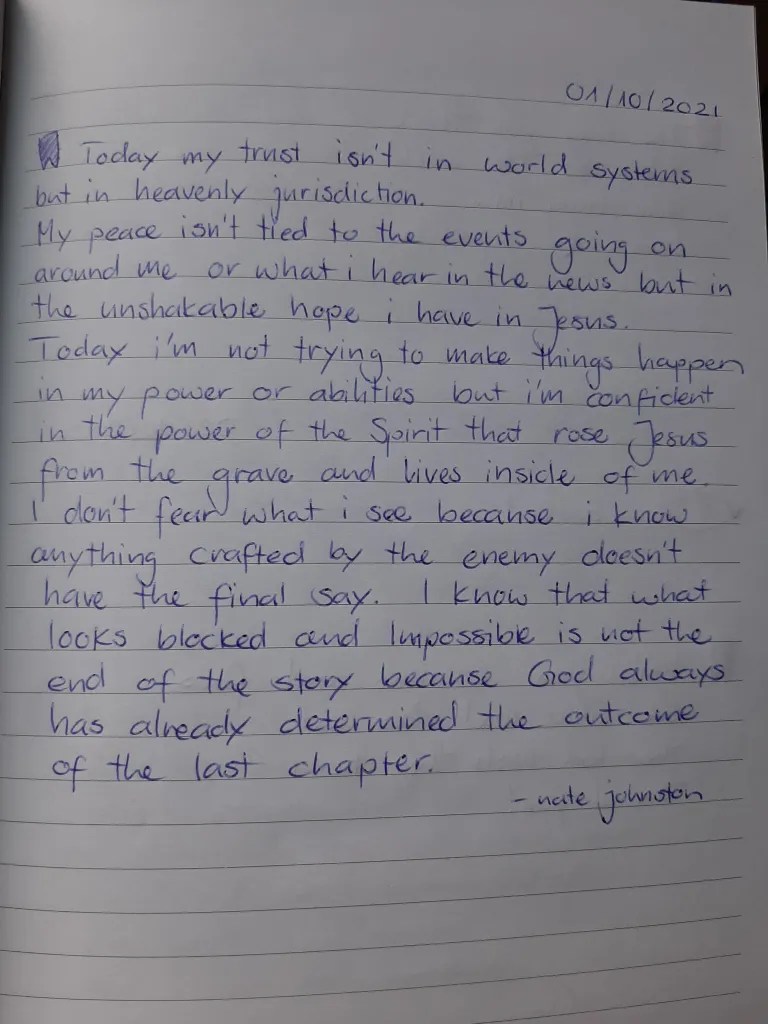 01/10/2021
Today my trust isn't in world systems
but in heavenly jurisdiction.
My peace isn't tied to the events going on
around me or what i hear in the news but in
the unshakable hope i have in Jesus.
Today i'm not trying to make things happen
in my power or abilities but i'm confident
in the power of the Spirit that rose Jesus
from the grave and lives inside of me.
I don't fear what i see because i know
anything crafted by the enemy doesn't
have the final say. I know that what
looks blocked and Impossible is not the
end of the story because God always
has already determined the outcome
of the last chapter.
- nate johnston